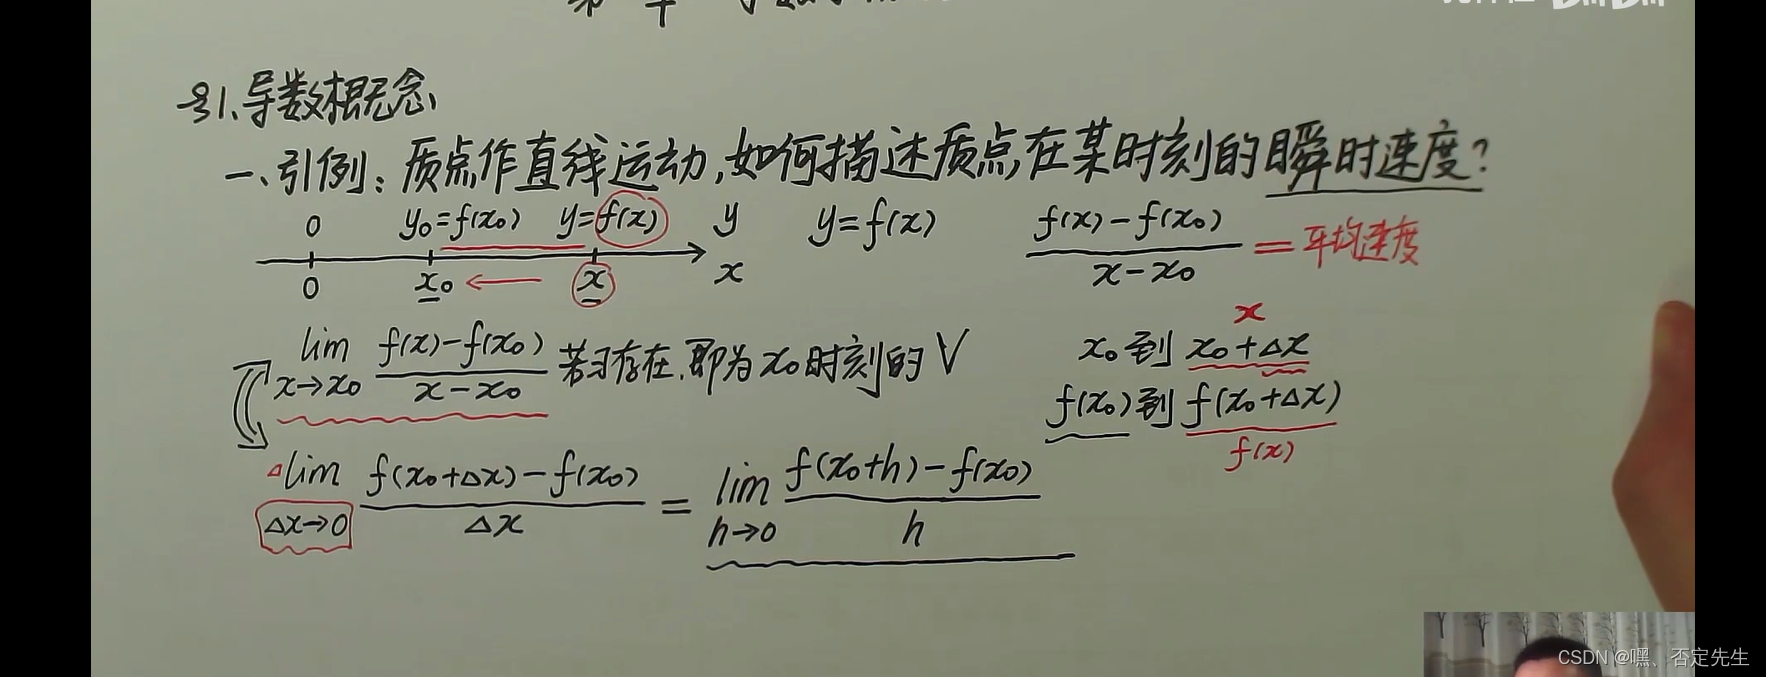 §1.导数概念
一、引例：质点作直线运动,如何描述质点在某时刻的瞬时速度?
0 y₀=f(x₀) y=f(x) y
0 x₀ x x
y=f(x)
(f(x)-f(x₀))/(x-x₀) = 平均速度
lim x→x₀ (f(x)-f(x₀))/(x-x₀) 若∃存在,即为x₀时刻的V
x
x₀到 x₀+Δx
f(x₀)到 f(x₀+Δx)
f(x)
Δ lim Δx→0 (f(x₀+Δx)-f(x₀))/Δx = lim h→0 (f(x₀+h)-f(x₀))/h
CSDN @嘿、否定先生